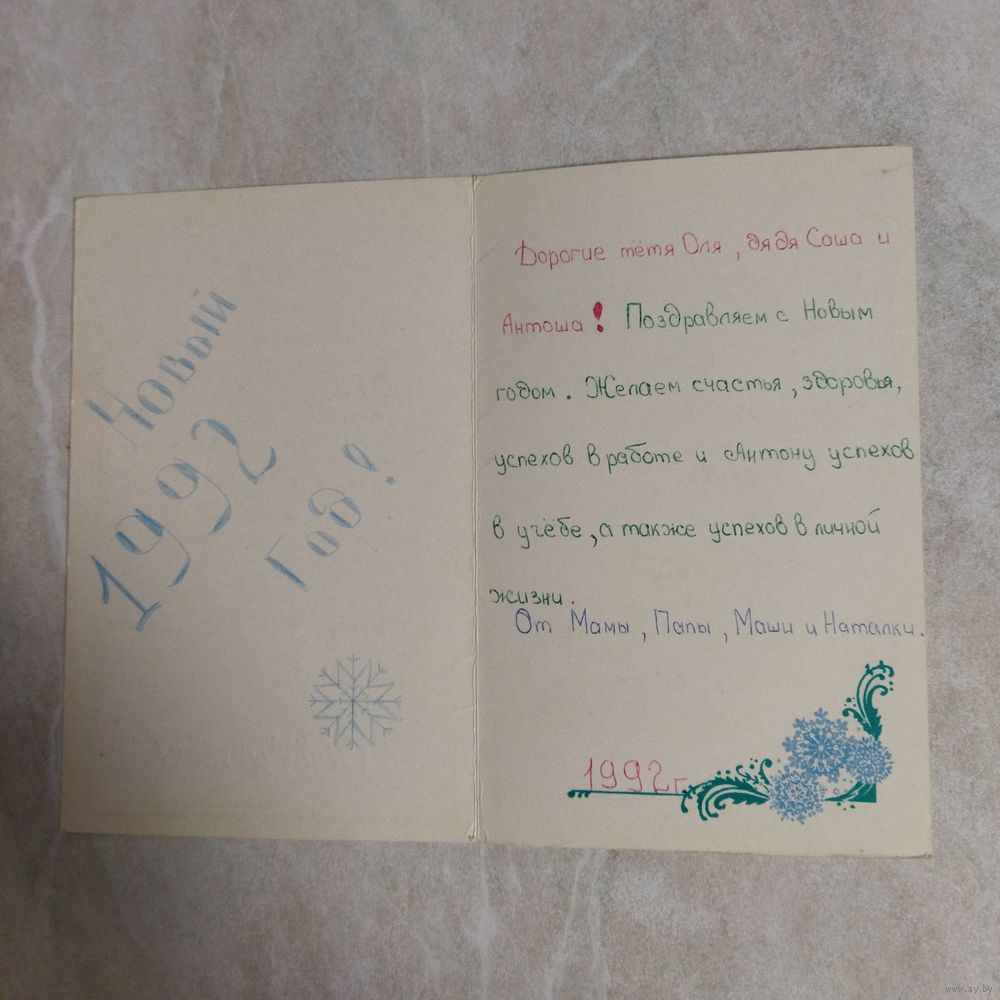 Новый
1992
Год!
Дорогие тётя Оля, дядя Саша и
Антоша! Поздравляем с Новым
годом. Желаем счастья, здоровья,
успехов в работе и Антону успехов
в учёбе, а также успехов в личной
жизни.
От Мамы, Папы, Маши и Наталки.
1992 г.
www.ay.by